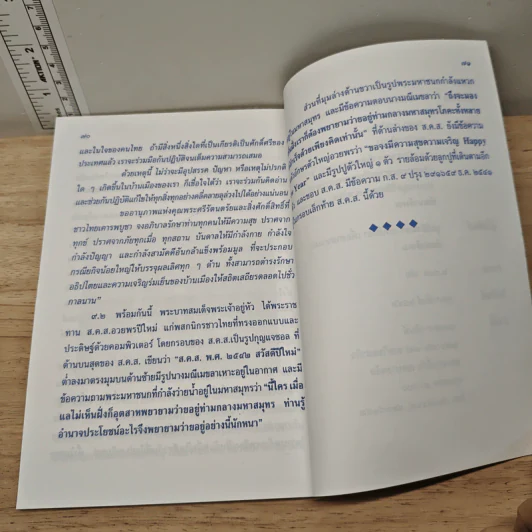 ๗๐
และในใจของคนไทย ถ้ามีสิ่งหนึ่งสิ่งใดที่เป็นเกียรติเป็นศักดิ์ศรีของ
ประเทศแล้ว เราจะร่วมมือกันปฏิบัติจนเต็มความสามารถเสมอ
ด้วยเหตุนี้ ไม่ว่าจะมีอุปสรรค ปัญหา หรือเหตุไม่ปรกติ
ใด ๆ เกิดขึ้นในบ้านเมืองของเรา ก็เชื่อใจได้ว่า เราจะร่วมกันคิดอ่าน
และช่วยกันปฏิบัติแก้ไขให้ทุกสิ่งทุกอย่างคลี่คลายลุล่วงไปได้อย่างแน่นอน
ขออานุภาพแห่งคุณพระศรีรัตนตรัยและสิ่งศักดิ์สิทธิ์ที่
ชาวไทยเคารพบูชา จงอภิบาลรักษาท่านทุกคนให้มีความสุข ปราศจาก
ทุกข์ ปราศจากภัยทุกเมื่อ ทุกสถาน บันดาลให้มีกำลังกาย กำลังใจ
กำลังปัญญา และกำลังสามัคคีอันกล้าแข็งพร้อมมูล ที่จะประกอบ
กรณียกิจน้อยใหญ่ให้บรรจุผลเลิศทุก ๆ ด้าน ทั้งสามารถดำรงรักษา
อธิปไตยและความเจริญร่มเย็นของบ้านเมืองให้สถิตเสถียรตลอดไปชั่ว
กาลนาน"
๙.๒ พร้อมกันนี้ พระบาทสมเด็จพระเจ้าอยู่หัว ได้พระราช
ทาน ส.ค.ส.อวยพรปีใหม่ แก่พสกนิกรชาวไทยที่ทรงออกแบบและ
ประดิษฐ์ด้วยคอมพิวเตอร์ โดยกรอบของ ส.ค.ส.เป็นรูปกุญแจซอล ที่
ด้านบนสุดของ ส.ค.ส. เขียนว่า "ส.ค.ส. พ.ศ. ๒๕๔๒ สวัสดีปีใหม่"
ต่ำลงมาตรงมุมบนด้านซ้ายมีรูปนางมณีเมขลาเหาะอยู่ในอากาศ และมี
ข้อความถามพระมหาชนกที่กำลังว่ายน้ำอยู่ในมหาสมุทรว่า "นี้ใคร เมื่อ
แลไม่เห็นฝั่งก็อุตสาหพยายามว่ายอยู่ท่ามกลางมหาสมุทร ท่านรู้
อำนาจประโยชน์อะไรจึงพยายามว่ายอยู่อย่างนี้นักหนา"
๗๑
ส่วนที่มุมล่างด้านขวาเป็นรูปพระมหาชนกกำลังแหวก
ในมหาสมุทร และมีข้อความตอบนางมณีเมขลาว่า
เราที่ต้องพยายามว่ายอยู่ท่ามกลางมหาสมุทร
ด้วยเพียงคิดเท่านั้น" ที่ด้านล่างของ ส.ค.ส. ยังมีข้อความ
ตัวใหญ่อวยพรว่า "ขอจงมีความสุขความเจริญ Happy
Year" และมีรูปปูตัวใหญ่ ๑ ตัว รายล้อมด้วยลูกปู
ขอบ ส.ค.ส. มีข้อความ ก.ส. ๙ ปรุง
ท้าย ส.ค.ส. นี้ด้วย